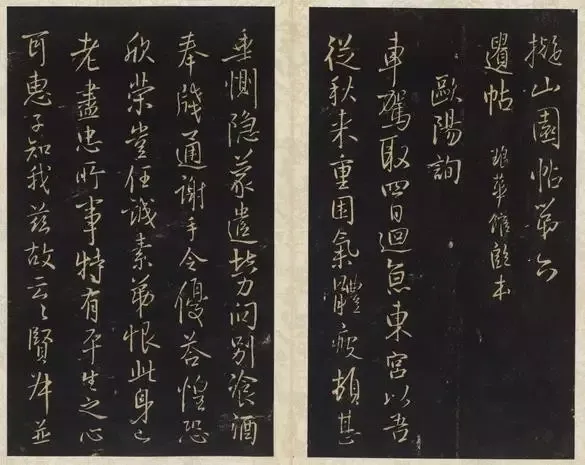 擬山園帖第六
遺帖 琅華館本
歐陽詢
車駕取四日迴東宮以吾
從秋来重困氣體疲頓甚
垂惻隐蒙遣力问别飡酒
奉牋通謝手令優荅惶恐
欣榮豈任誠素弟恨此身已
老盡忠所事特有平生之心
可惠子知我茲故云々賢並